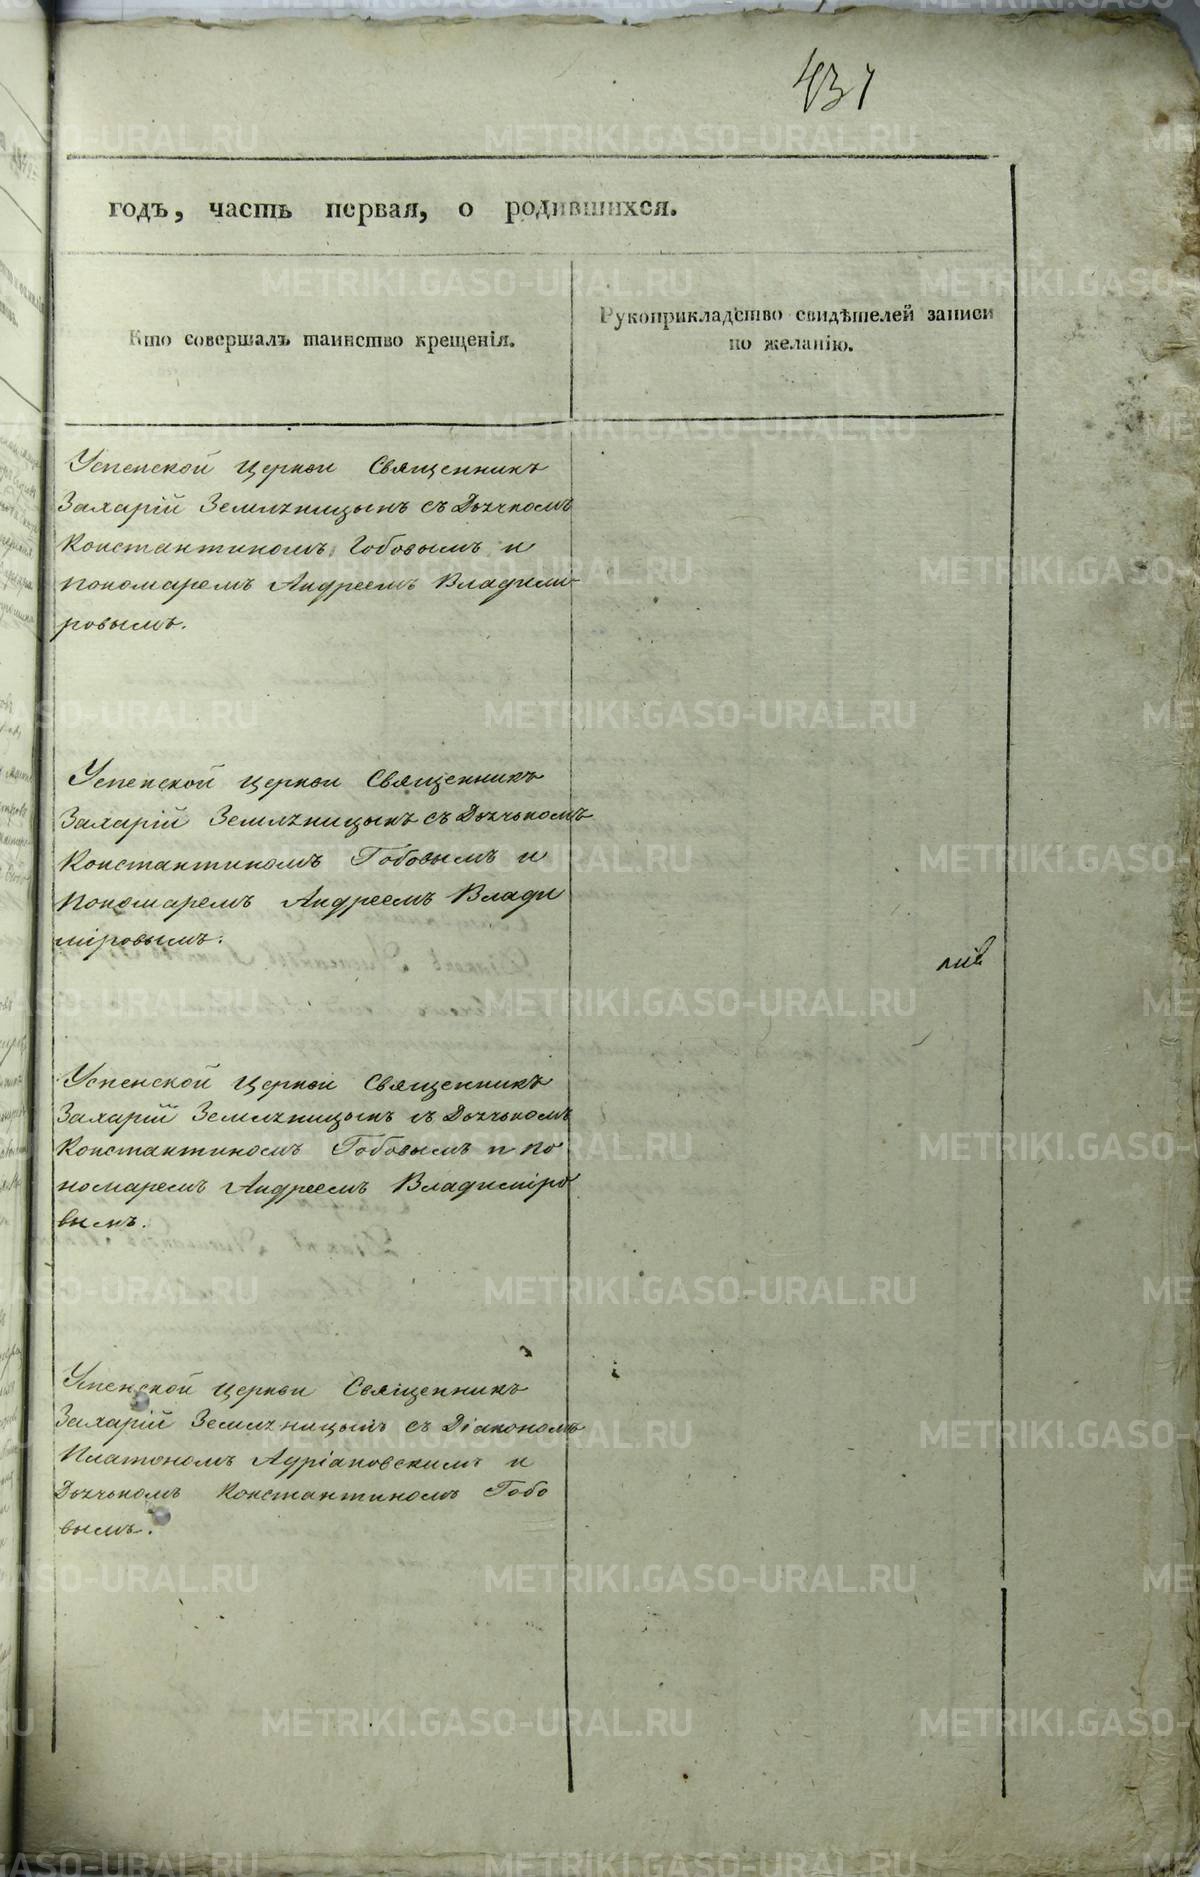 431
годъ, часть первая, о родившихся.
Кто совершалъ таинство крещенія.
Рукоприкладство свидѣтелей записи
по желанію.
Успенской Церкви Священникъ
Захарій Земляницынъ съ Дьячкомъ
Константиномъ Гобовымъ и
пономаремъ Андреемъ Владимі-
ровымъ.
Успенской Церкви Священникъ
Захарій Земляницынъ съ Дьячькомъ
Константиномъ Гобовымъ и
Пономаремъ Андреемъ Влади
міровымъ.
Успенской Церкви Священникъ
Захарій Земляницынъ съ Дьячькомъ
Константиномъ Гобовымъ и по
номаремъ Андреемъ Владиміро
вымъ.
Успенской Церкви Священникъ
Захарій Земляницынъ съ Діакономъ
Платономъ Адріановскимъ и
Дьячькомъ Константиномъ Гобо
вымъ.
METRIKI.GASO-URAL.RU